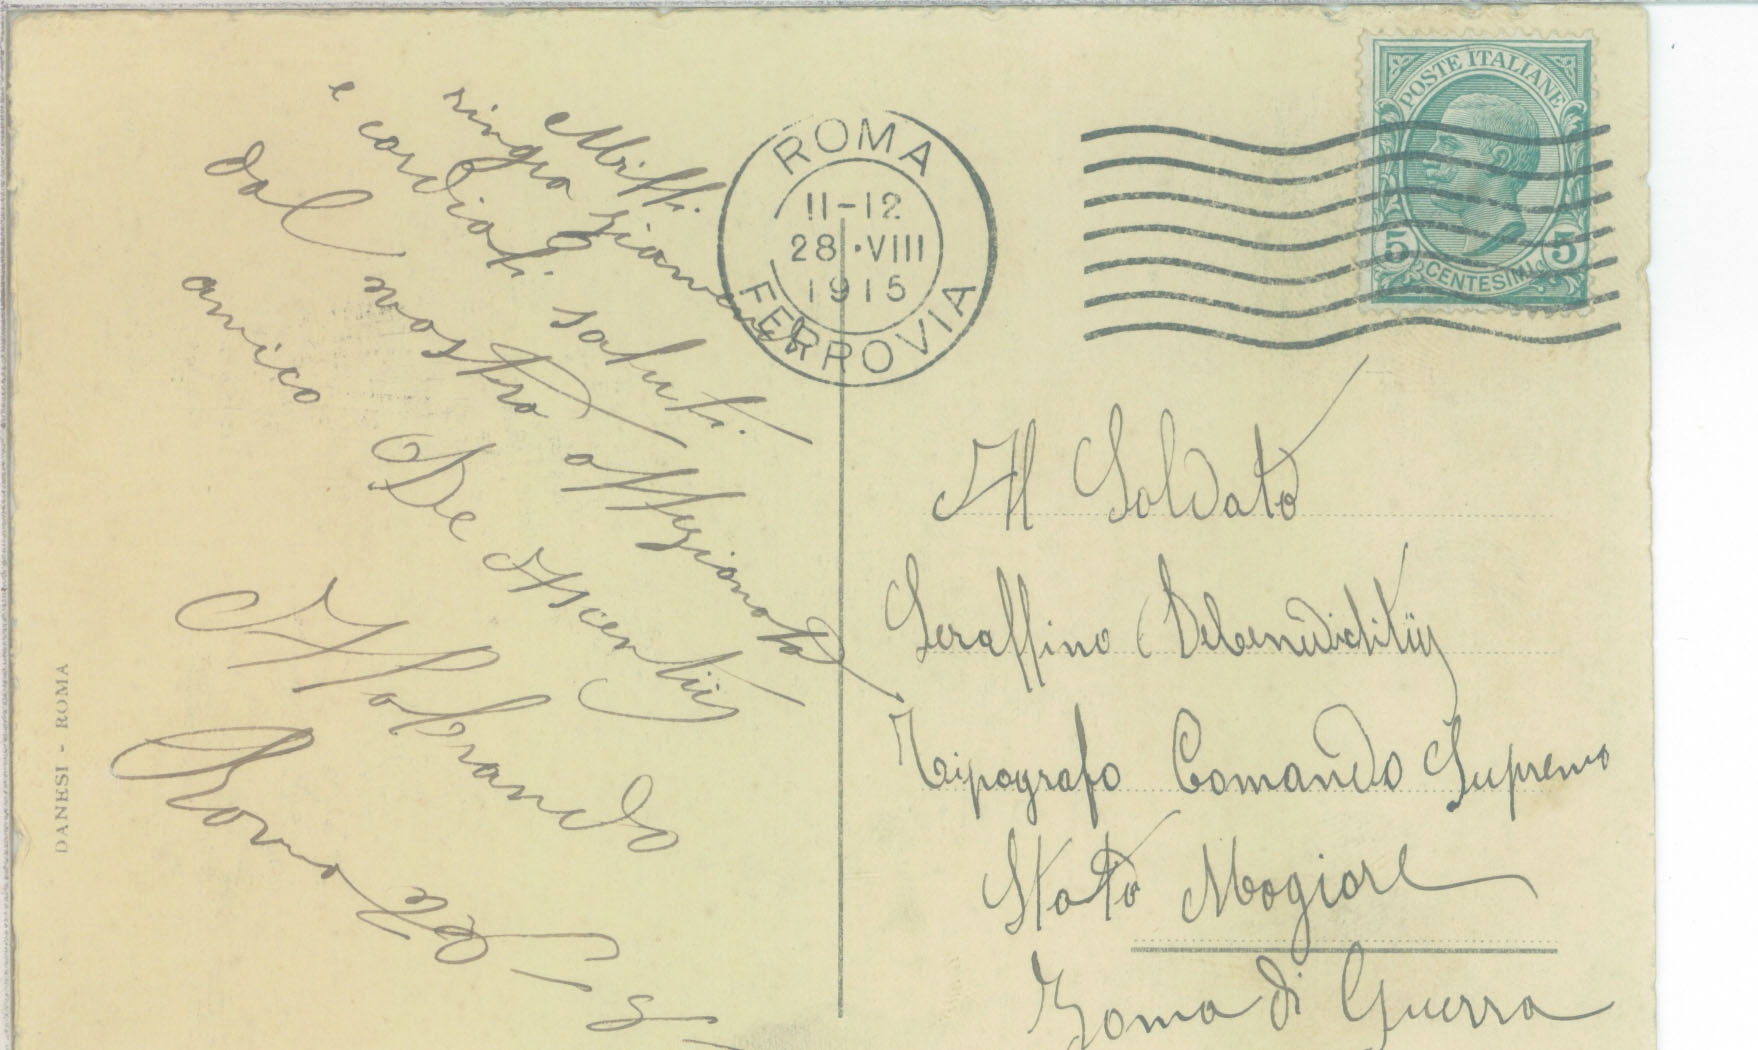 Mriffi.
ringraziamenti
e cordiali saluti.
dal nostro affezionato
amico
De Ascentiis
Ildebrando
Roma
DANESI - ROMA
ROMA
11-12
28·VIII
1915
FERROVIA
POSTE ITALIANE
5 5
CENTESIMI
Al Soldato
Seraffino Debenidictiis
Tipografo Comando Supremo
Stato Magiore
Zona di Guerra